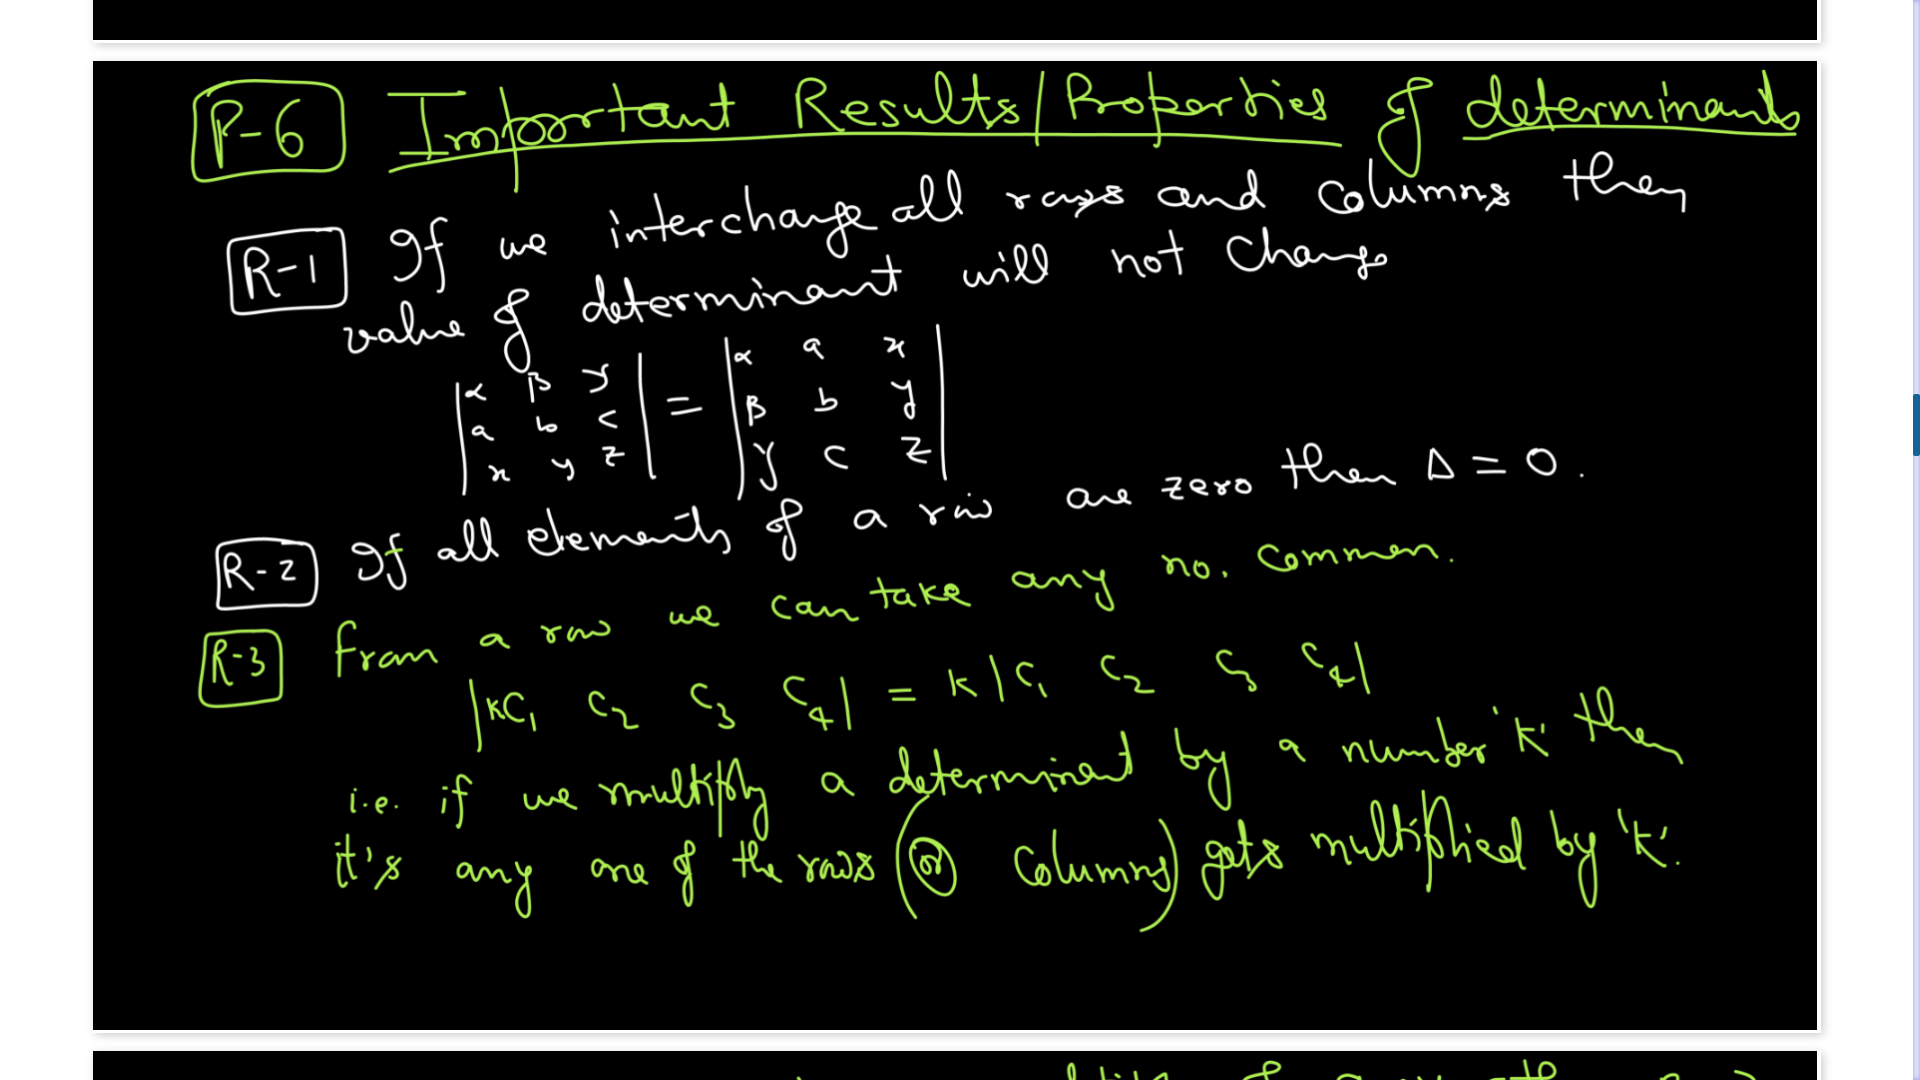 P-6 Important Results/Properties of determinants
R-1 If we interchange all rows and columns then
value of determinant will not change
|α β γ| = |α a x|
|a b c| |β b y|
|x y z| |γ c z|
R-2 If all elements of a row are zero then Δ = 0.
R-3 From a row we can take any no. common.
|KC₁ C₂ C₃ C₄| = K|C₁ C₂ C₃ C₄|
i.e. if we multiply a determinant by a number 'K' then
it's any one of the rows (or columns) gets multiplied by 'K'.